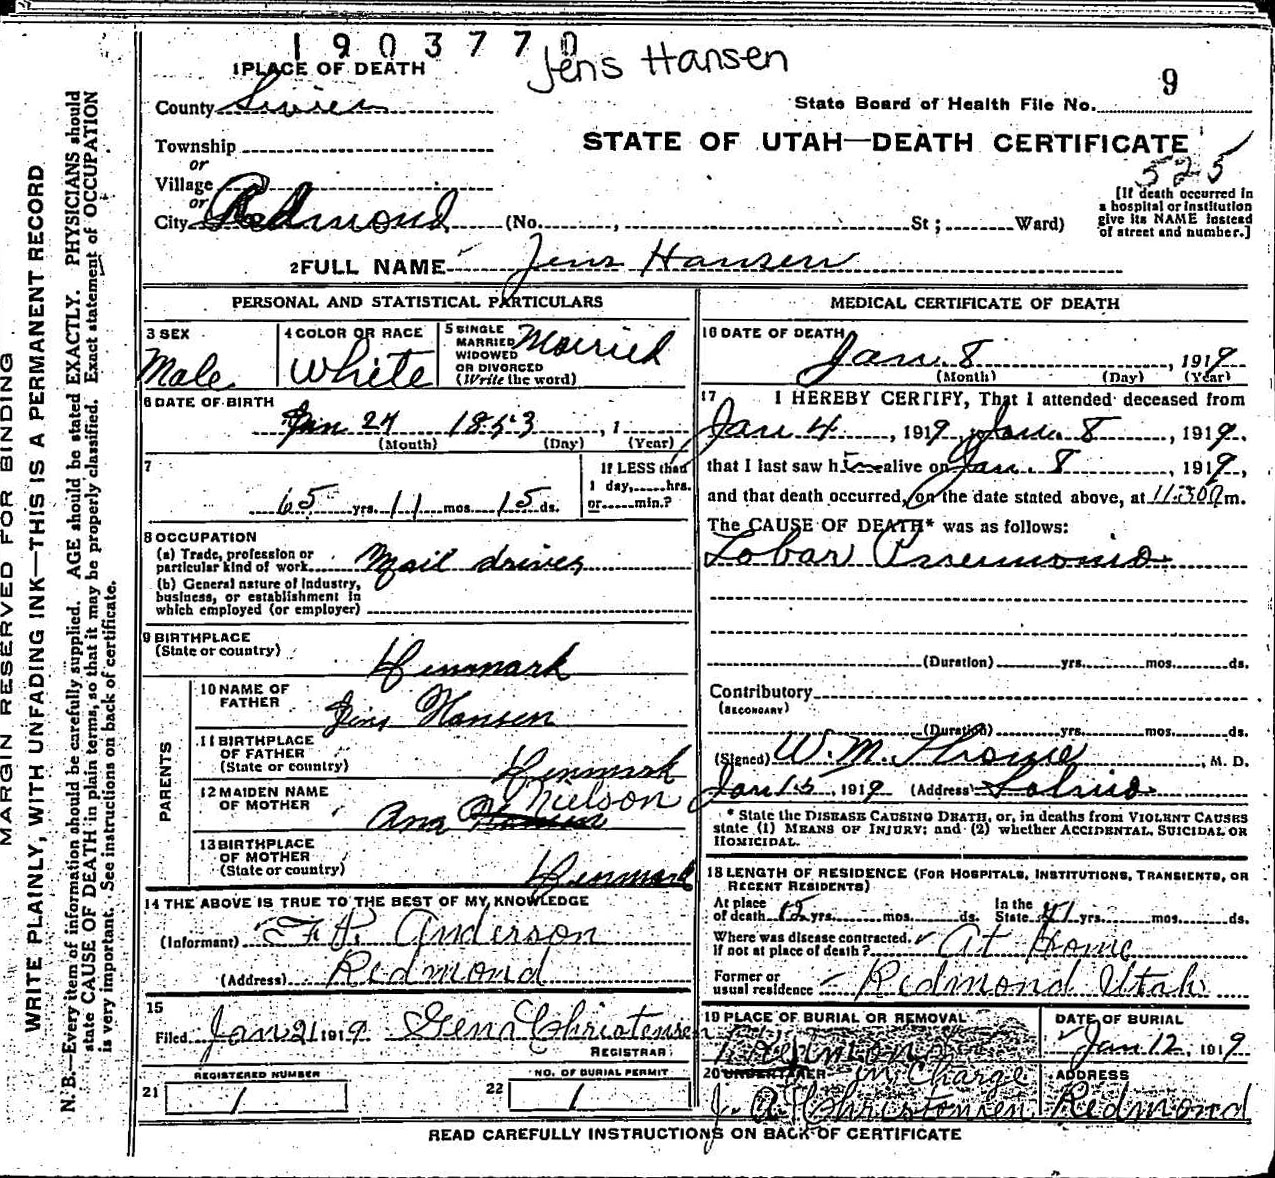 1903770
Jens Hansen
1 PLACE OF DEATH
9
County Sevier
State Board of Health File No.
Township
STATE OF UTAH—DEATH CERTIFICATE
or
525
Village
or
City Redmond (No. , St ; Ward)
[If death occurred in
a hospital or institution
give its NAME instead
of street and number.]
2 FULL NAME Jens Hansen
PERSONAL AND STATISTICAL PARTICULARS
3 SEX
Male
4 COLOR OR RACE
White
5 SINGLE
MARRIED
WIDOWED
OR DIVORCED
(Write the word)
Married
6 DATE OF BIRTH
Jan 24 1853 , 1
(Month) (Day) (Year)
7
65 yrs. 11 mos. 15 ds.
If LESS than
1 day, hrs.
or min.?
8 OCCUPATION
(a) Trade, profession or
particular kind of work Mail driver
(b) General nature of industry,
business, or establishment in
which employed (or employer)
9 BIRTHPLACE
(State or country)
Denmark
PARENTS
10 NAME OF
FATHER
Jens Hansen
11 BIRTHPLACE
OF FATHER
(State or country)
Denmark
12 MAIDEN NAME
OF MOTHER
Ana Nielson
13 BIRTHPLACE
OF MOTHER
(State or country)
Denmark
14 THE ABOVE IS TRUE TO THE BEST OF MY KNOWLEDGE
(Informant) F. P. Anderson
(Address) Redmond
15
Filed Jan 21 1919 Gena Christensen
REGISTRAR
REGISTERED NUMBER
21 1
NO. OF BURIAL PERMIT
22 1
MEDICAL CERTIFICATE OF DEATH
16 DATE OF DEATH
Jan. 8 , 1919
(Month) (Day) (Year)
17 I HEREBY CERTIFY, That I attended deceased from
Jan 4 , 1919, Jan. 8 , 1919,
that I last saw him alive on Jan. 8 , 1919,
and that death occurred, on the date stated above, at 11:30 m.
The CAUSE OF DEATH* was as follows:
Lobar Pneumonia
(Duration) yrs. mos. ds.
Contributory
(SECONDARY)
(Duration) yrs. mos. ds.
(Signed) W. M. Thome , M. D.
Jan 15, 1919 (Address) Salina
* State the DISEASE CAUSING DEATH, or, in deaths from VIOLENT CAUSES
state (1) MEANS OF INJURY; and (2) whether ACCIDENTAL, SUICIDAL OR
HOMICIDAL.
18 LENGTH OF RESIDENCE (FOR HOSPITALS, INSTITUTIONS, TRANSIENTS, OR
RECENT RESIDENTS)
At place
of death yrs. mos. ds.
In the
State 41 yrs. mos. ds.
Where was disease contracted,
if not at place of death? At Home
Former or
usual residence Redmond Utah
19 PLACE OF BURIAL OR REMOVAL
Redmond
DATE OF BURIAL
Jan 12, 1919
20 UNDERTAKER in Charge
J. A. Christensen
ADDRESS
Redmond
READ CAREFULLY INSTRUCTIONS ON BACK OF CERTIFICATE
MARGIN RESERVED FOR BINDING
WRITE PLAINLY, WITH UNFADING INK—THIS IS A PERMANENT RECORD
N. B.—Every item of information should be carefully supplied. AGE should be stated EXACTLY. PHYSICIANS should
state CAUSE OF DEATH in plain terms, so that it may be properly classified. Exact statement of OCCUPATION
is very important. See instructions on back of certificate.